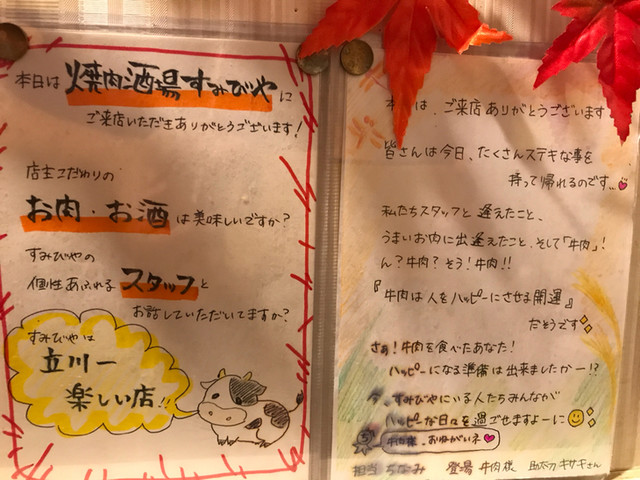 本日は 焼肉酒場すみびや に
ご来店いただきありがとうございます!
店主こだわりの
お肉・お酒 は美味しいですか?
すみびやの
個性あふれる スタッフ と
お話していただいてますか?
すみびやは
立川一
楽しい店!!
は、ご来店ありがとうございます
皆さんは今日、たくさんステキな事を
持って帰れるのです..
私たちスタッフと 逢えたこと、
うまいお肉に出逢えたこと、そして「牛肉」!
ん?牛肉?そう!牛肉!!
『牛肉は人をハッピーにさせる開運』
だそうです
さぁ!牛肉を食べたあなた!
ハッピーになる準備は出来ましたかー!?
今、すみびやにいる人たちみんなが
ハッピーな日々を過ごせますよーに
おねがいネ
担当 ちなみ 登場 牛肉様 助太刀 キサキさん